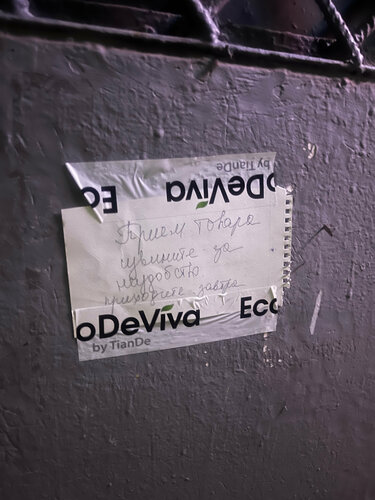 by TianDe
oDeViva
Ec
Прием товара
извините за
неудобство
приходите завтра
oDeViva Eco
by TianDe